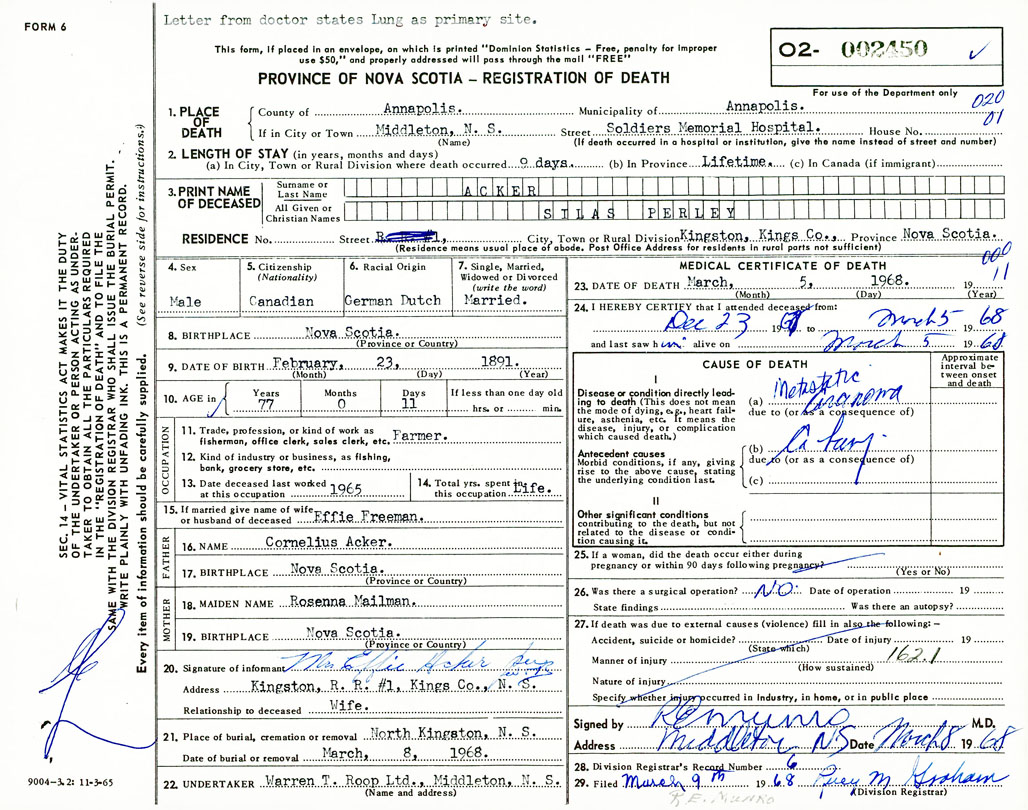 FORM 6
Letter from doctor states Lung as primary site.
This form, if placed in an envelope, on which is printed "Dominion Statistics – Free, penalty for improper
use $50," and properly addressed will pass through the mail "FREE"
PROVINCE OF NOVA SCOTIA – REGISTRATION OF DEATH
O2- 002450
For use of the Department only
020
01
1. PLACE OF DEATH
County of Annapolis. Municipality of Annapolis.
If in City or Town Middleton, N. S. Street Soldiers Memorial Hospital. House No.
(Name) (If death occurred in a hospital or institution, give the name instead of street and number)
2. LENGTH OF STAY (in years, months and days)
(a) In City, Town or Rural Division where death occurred 0 days. (b) In Province Lifetime. (c) In Canada (if immigrant)
3. PRINT NAME OF DECEASED
Surname or Last Name ACKER
All Given or Christian Names SILAS PERLEY
RESIDENCE No. Street City, Town or Rural Division Kingston, Kings Co., Province Nova Scotia.
(Residence means usual place of abode. Post Office Address for residents in rural parts not sufficient)
4. Sex
Male
5. Citizenship
(Nationality)
Canadian
6. Racial Origin
German Dutch
7. Single, Married,
Widowed or Divorced
(write the word)
Married.
8. BIRTHPLACE Nova Scotia.
(Province or Country)
9. DATE OF BIRTH February, 23, 1891.
(Month) (Day) (Year)
10. AGE in
Years Months Days If less than one day old
77 0 11 hrs. or min.
OCCUPATION
11. Trade, profession, or kind of work as
fisherman, office clerk, sales clerk, etc. Farmer.
12. Kind of industry or business, as fishing,
bank, grocery store, etc.
13. Date deceased last worked
at this occupation 1965
14. Total yrs. spent in
this occupation Life.
15. If married give name of wife
or husband of deceased Effie Freeman.
FATHER
16. NAME Cornelius Acker.
17. BIRTHPLACE Nova Scotia.
(Province or Country)
MOTHER
18. MAIDEN NAME Rosenna Mailman.
19. BIRTHPLACE Nova Scotia.
(Province or Country)
20. Signature of informant Mrs Effie Acker
Address Kingston, R. R. #1, Kings Co., N. S.
Relationship to deceased Wife.
21. Place of burial, cremation or removal North Kingston, N. S.
Date of burial or removal March, 8, 1968.
22. UNDERTAKER Warren T. Roop Ltd., Middleton, N. S.
(Name and address)
MEDICAL CERTIFICATE OF DEATH
000
11
23. DATE OF DEATH March, 5, 1968. 19
(Month) (Day) (Year)
24. I HEREBY CERTIFY that I attended deceased from:
Dec 23 19 to March 5 19 68
and last saw him alive on March 5 19 68
CAUSE OF DEATH
Approximate interval between onset and death
I
Disease or condition directly leading
to death (This does not mean
the mode of dying, e.g., heart failure,
asthenia, etc. It means the
disease, injury, or complication
which caused death.)
(a) Metastatic Carcinoma
due to (or as a consequence of)
Antecedent causes
Morbid conditions, if any, giving
rise to the above cause, stating
the underlying condition last.
(b) Ca Lung
due to (or as a consequence of)
(c)
II
Other significant conditions
contributing to the death, but not
related to the disease or condition
causing it.
25. If a woman, did the death occur either during
pregnancy or within 90 days following pregnancy?
(Yes or No)
26. Was there a surgical operation? NO. Date of operation 19
State findings Was there an autopsy?
27. If death was due to external causes (violence) fill in also the following: –
Accident, suicide or homicide? Date of injury 19
(State which)
Manner of injury 162.1
(How sustained)
Nature of injury
Specify whether injury occurred in Industry, in home, or in public place
Signed by R E Munro M.D.
Address Middleton NS Date March 8 19 68
28. Division Registrar's Record Number 6
29. Filed March 9th 1968 M. Graham
(Division Registrar)
R.E. MUNRO
SEC. 14 – VITAL STATISTICS ACT MAKES IT THE DUTY
OF THE UNDERTAKER OR PERSON ACTING AS UNDERTAKER
TO OBTAIN ALL THE PARTICULARS REQUIRED
IN THE "REGISTRATION OF DEATH" AND TO FILE THE
SAME WITH THE DIVISION REGISTRAR WHO SHALL ISSUE THE BURIAL PERMIT.
WRITE PLAINLY WITH UNFADING INK. THIS IS A PERMANENT RECORD.
Every item of information should be carefully supplied. (See reverse side for instructions.)
9004-3.2: 11-3-65